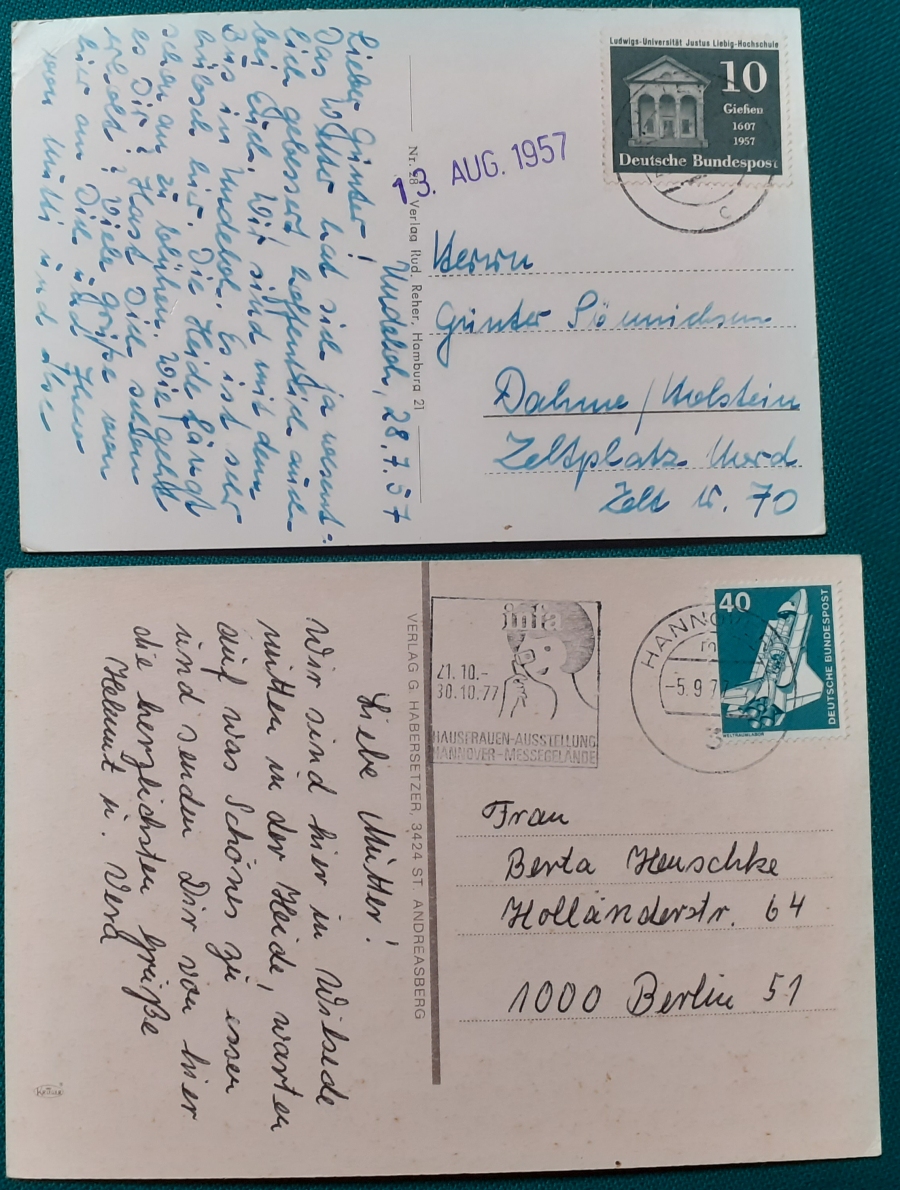 Ludwigs-Universität Justus Liebig-Hochschule
10
Gießen
1607
1957
Deutsche Bundespost
13. AUG. 1957
Nr. 28 Verlag Rud. Reher, Hamburg 21
Undeloh, 28.7.57
Lieber Günter!
Das Wetter hat sich ja wesent-
lich gebessert, hoffentlich auch
bei Euch. Wir sind mit dem
Bus in Undeloh. Es ist sehr
hübsch hier. Die Heide fängt
schon an zu blühen. Wie geht
es Dir? Hast Dich schon
erholt? Viele Grüße von
hier an Dich und Ihren
von Mutti und
Herrn
Günter
Dahme/Holstein
Zeltplatz Nord
Zelt Nr. 70
infa
21.10.-
30.10.77
HAUSFRAUEN-AUSSTELLUNG
HANNOVER-MESSEGELÄNDE
HANNOVER
-5.9.7
3
40
DEUTSCHE BUNDESPOST
WELTRAUMLABOR
VERLAG G. HABERSETZER, 3424 ST. ANDREASBERG
Liebe Mutter!
Wir sind hier in Wilsede
mitten in der Heide, warten
auf was Schönes zu essen
und senden Dir von hier
die herzlichsten Grüße
Helmut u. Vera
Frau
Berta Henschke
Holländerstr. 64
1000 Berlin 51